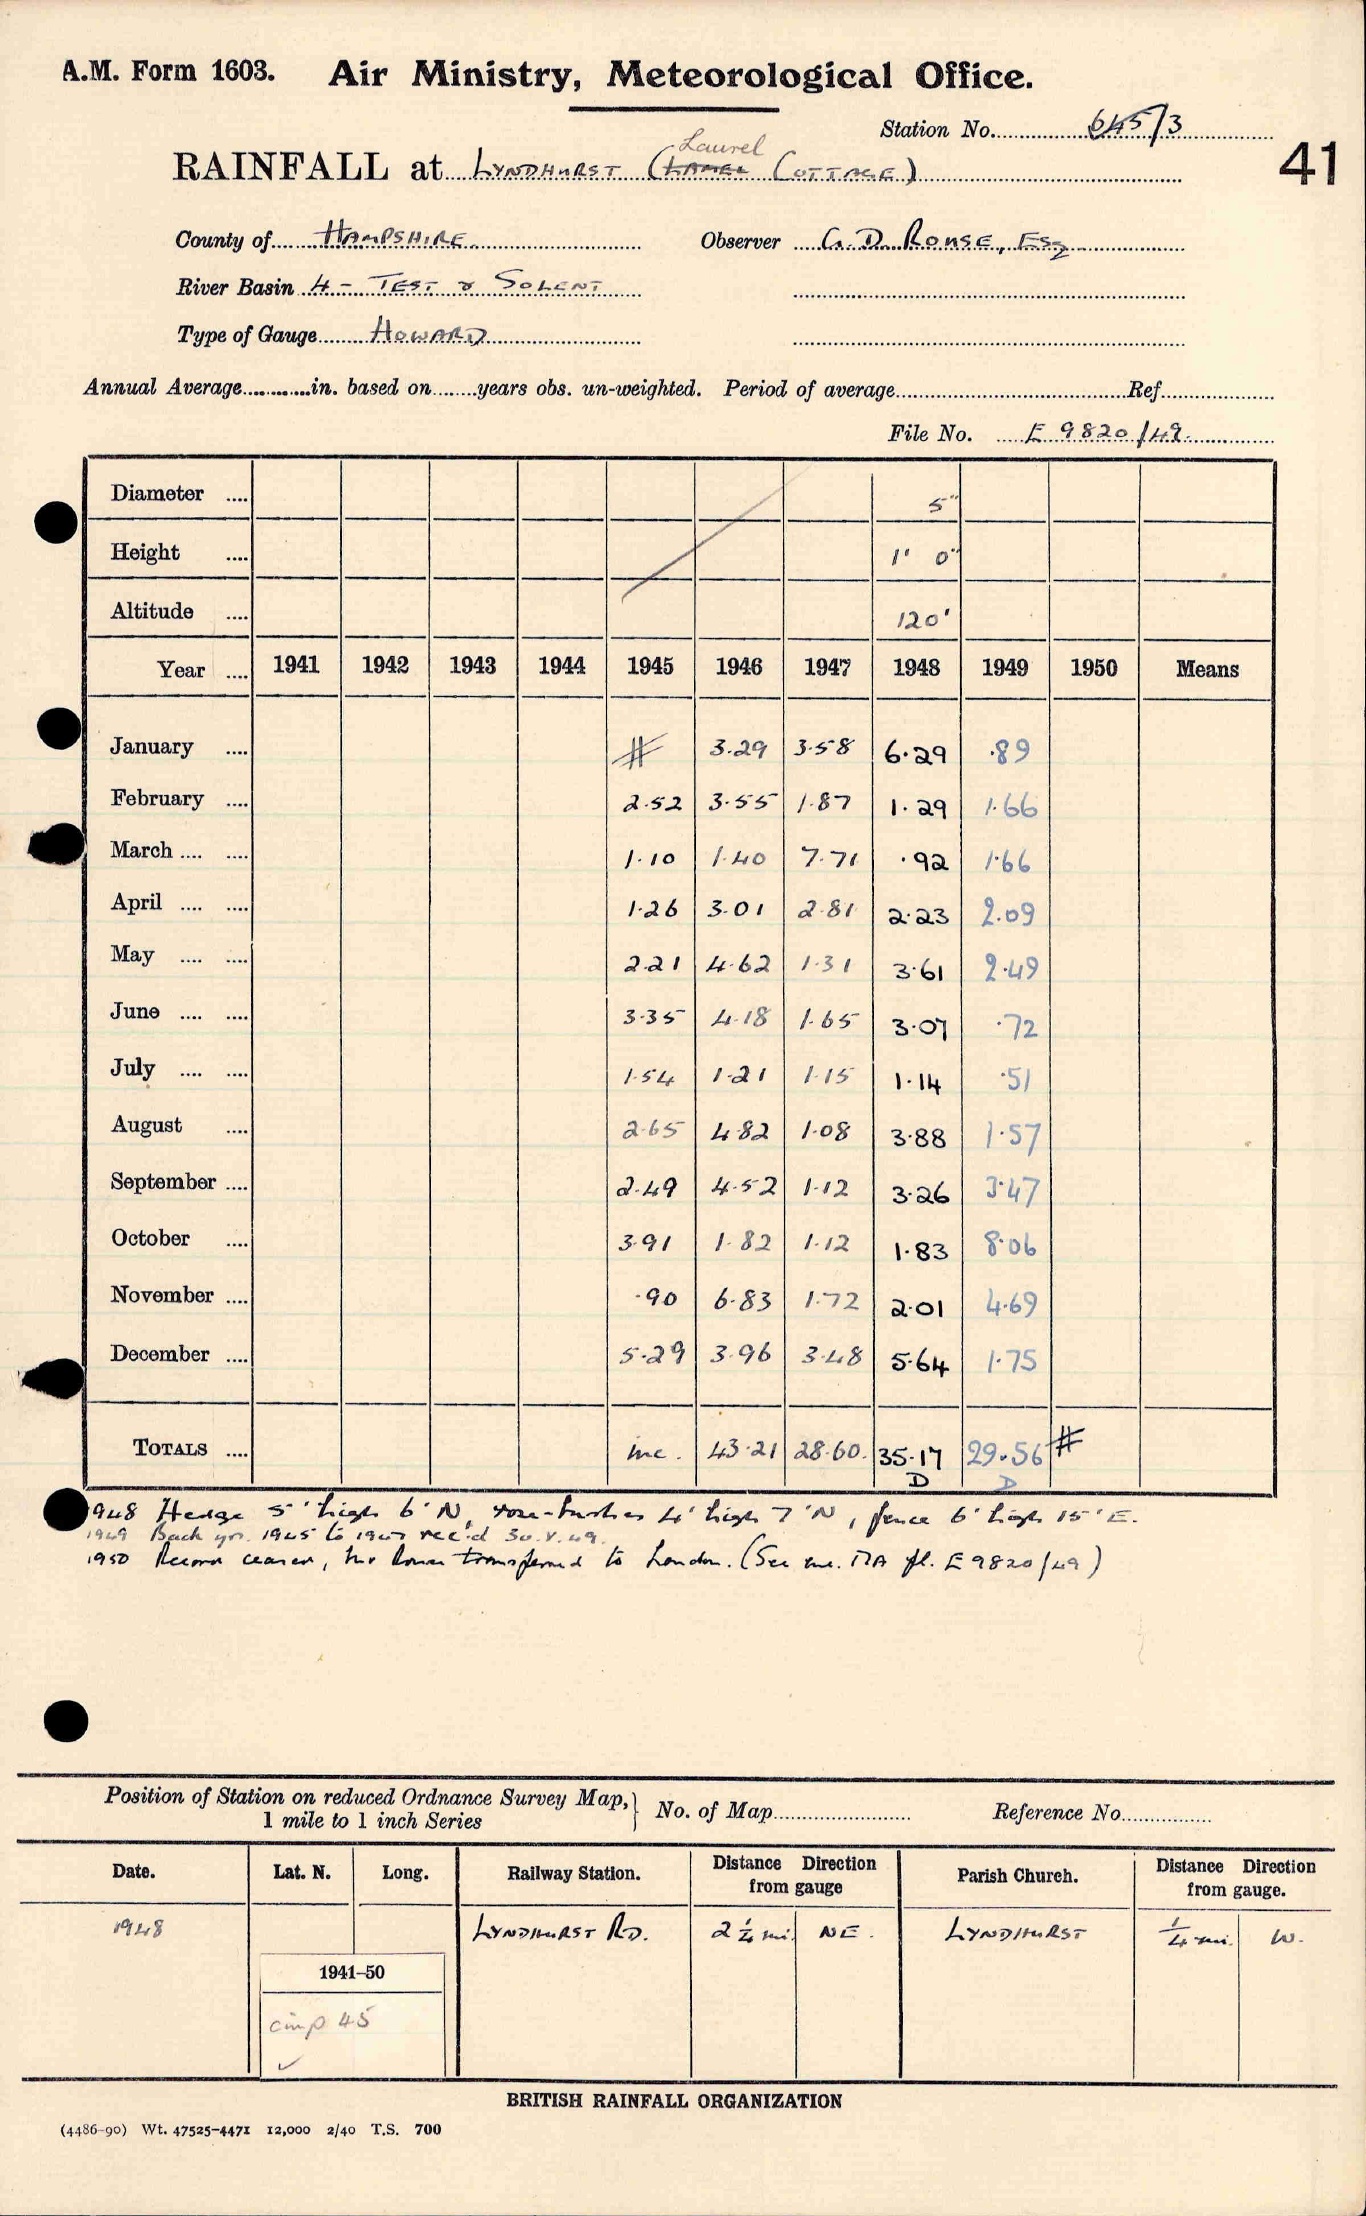 A.M. Form 1603. Air Ministry, Meteorological Office.
Station No. 645/3
41
Laurel
RAINFALL at LYNDHURST (LAMEL COTTAGE)
County of HAMPSHIRE Observer G. D. ROUSE, Esq
River Basin 4 - TEST & SOLENT
Type of Gauge HOWARD
Annual Average............in. based on........years obs. un-weighted. Period of average..........Ref..........
File No. E 9820/49.
Diameter .... 5"
Height .... 1' 0"
Altitude .... 120'
Year .... 1941 1942 1943 1944 1945 1946 1947 1948 1949 1950 Means
January .... # 3.29 3.58 6.29 .89
February .... 2.52 3.55 1.87 1.29 1.66
March .... .... 1.10 1.40 7.71 .92 1.66
April .... .... 1.26 3.01 2.81 2.23 2.09
May .... .... 2.21 4.62 1.31 3.61 2.49
June .... .... 3.35 4.18 1.65 3.07 .72
July .... .... 1.54 1.21 1.15 1.14 .51
August .... 2.65 4.82 1.08 3.88 1.57
September .... 2.49 4.52 1.12 3.26 3.47
October .... 3.91 1.82 1.12 1.83 8.06
November .... .90 6.83 1.72 2.01 4.69
December .... 5.29 3.96 3.48 5.64 1.75
TOTALS .... inc. 43.21 28.60. 35.17 29.56 #
D D
1948 Hedge 5' high 6' N, rose-bushes 4' high 7' N, fence 6' high 15' E.
1949 Back yrs. 1945 to 1947 rec'd 30.V.49.
1950 Record ceased, Mr Rouse transferred to London. (See E 9820/49)
Position of Station on reduced Ordnance Survey Map, 1 mile to 1 inch Series } No. of Map.......... Reference No..........
Date. Lat. N. Long. Railway Station. Distance Direction from gauge Parish Church. Distance Direction from gauge.
1948 LYNDHURST RD. 2 1/4 mi. NE. LYNDHURST 1/4 mi. W.
1941-50
cmp 45
✓
BRITISH RAINFALL ORGANIZATION
(4486-90) Wt. 47525-4471 12,000 2/40 T.S. 700